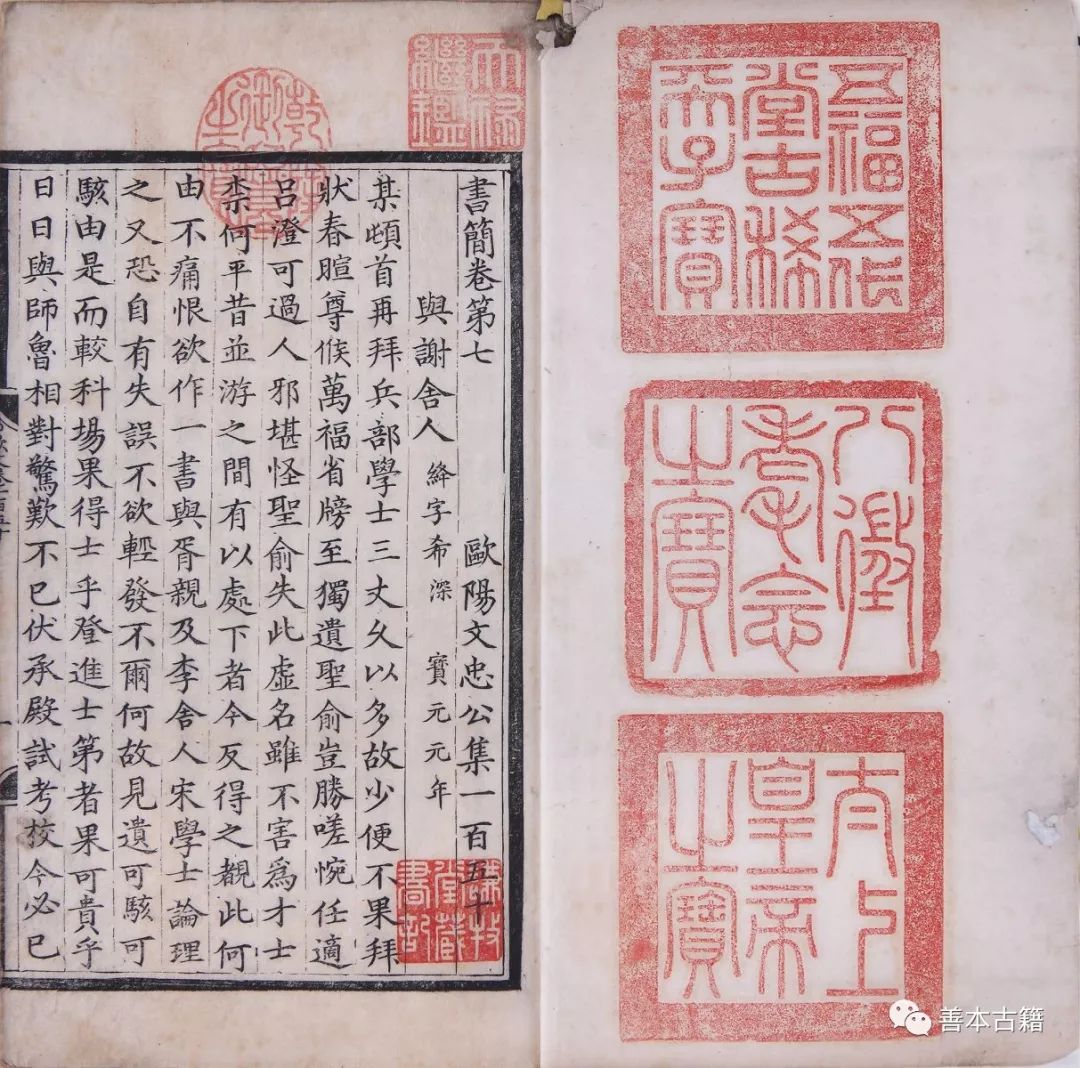 五福五代
堂古稀
天子寶
八徵
耄念
之寶
太上
皇帝
之寶
天祿
繼鑑
乾隆
御覽
之寶
書簡卷第七 歐陽文忠公集一百五十
與謝舍人 絳字希深 寶元元年
某頓首再拜兵部學士三丈久以多故少便不果拜
狀春暄尊候萬福省牓至獨遺聖俞豈勝嗟惋任適
呂澄可過人邪堪怪聖俞失此虛名雖不害爲才士
柰何平昔並游之間有以處下者今反得之覩此何
由不痛恨欲作一書與胥親及李舍人宋學士論理
之又恐自有失誤不欲輕發不爾何故見遺可駭可
駭由是而較科場果得士乎登進士第者果可貴乎
日日與師魯相對驚歎不已伏承殿試考校今必已
謙牧
堂藏
書記
善本古籍